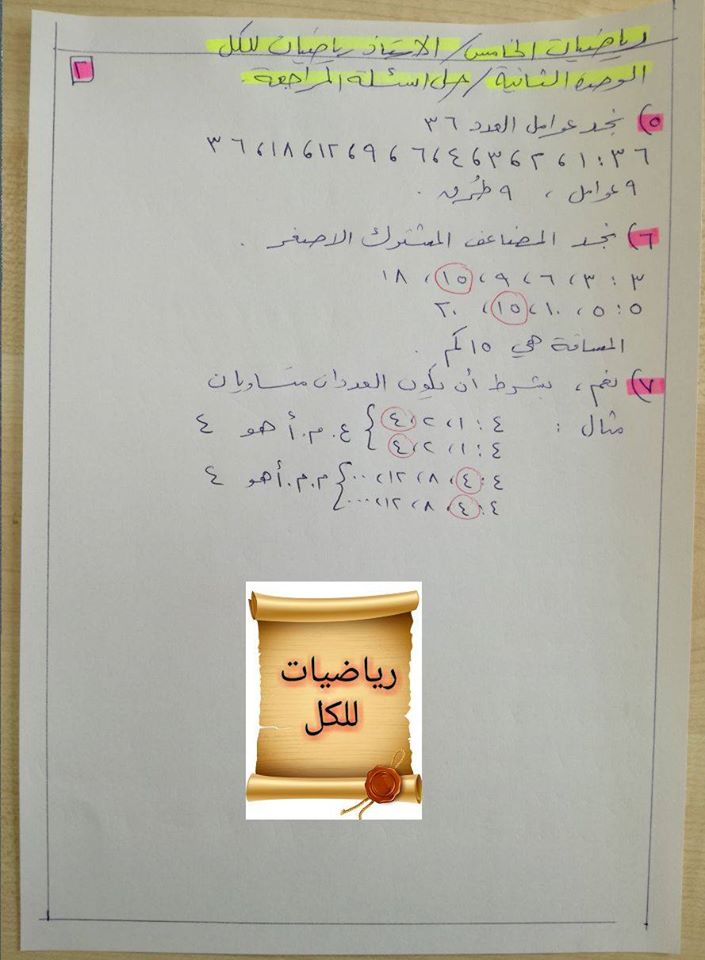 رياضيات الخامس / الاستاذ رياضيات للكل
الوحدة الثانية / حل اسئلة المراجعة
٢
٥) نجد عوامل العدد ٣٦
٣٦ : ١ ، ٢ ، ٣ ، ٤ ، ٦ ، ٩ ، ١٢ ، ١٨ ، ٣٦
٩ عوامل ، ٩ طُرق .
٦) نجد المضاعف المشترك الاصغر .
٣ : ٣ ، ٦ ، ٩ ، ١٥ ، ١٨
٥ : ٥ ، ١٠ ، ١٥ ، ٢٠
المسافة هي ١٥ كم .
٧) نعم ، بشرط أن يكون العددان متساويان
مثال : ٤ : ١ ، ٢ ، ٤ } ع . م . أ هو ٤
٤ : ١ ، ٢ ، ٤
٤ : ٤ ، ٨ ، ١٢ ، ... } م . م . أ هو ٤
٤ : ٤ ، ٨ ، ١٢ ، ...
رياضيات
للكل